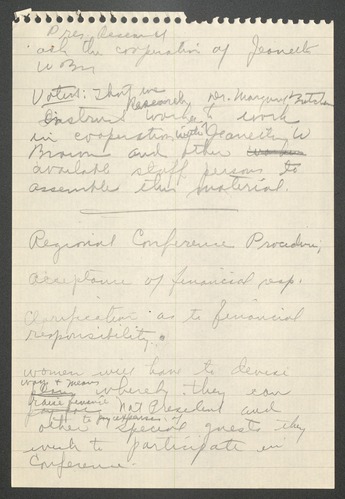 Pres.
ask the cooperation of Jeanetta
W Br
Voted: That we
Research, Dr. Margaret Butcher
work
in cooperation with Jeanetta W
Brown and other workers
available staff persons to
assemble this material.
Regional Conference Procedure,
Acceptance of financial resp.
Clarification as to financial
responsibility.
women will have to devise
way & means
plan whereby they can
raise finance Nat President and
to pay expenses of
other special guests they
wish to participate in
Conference.